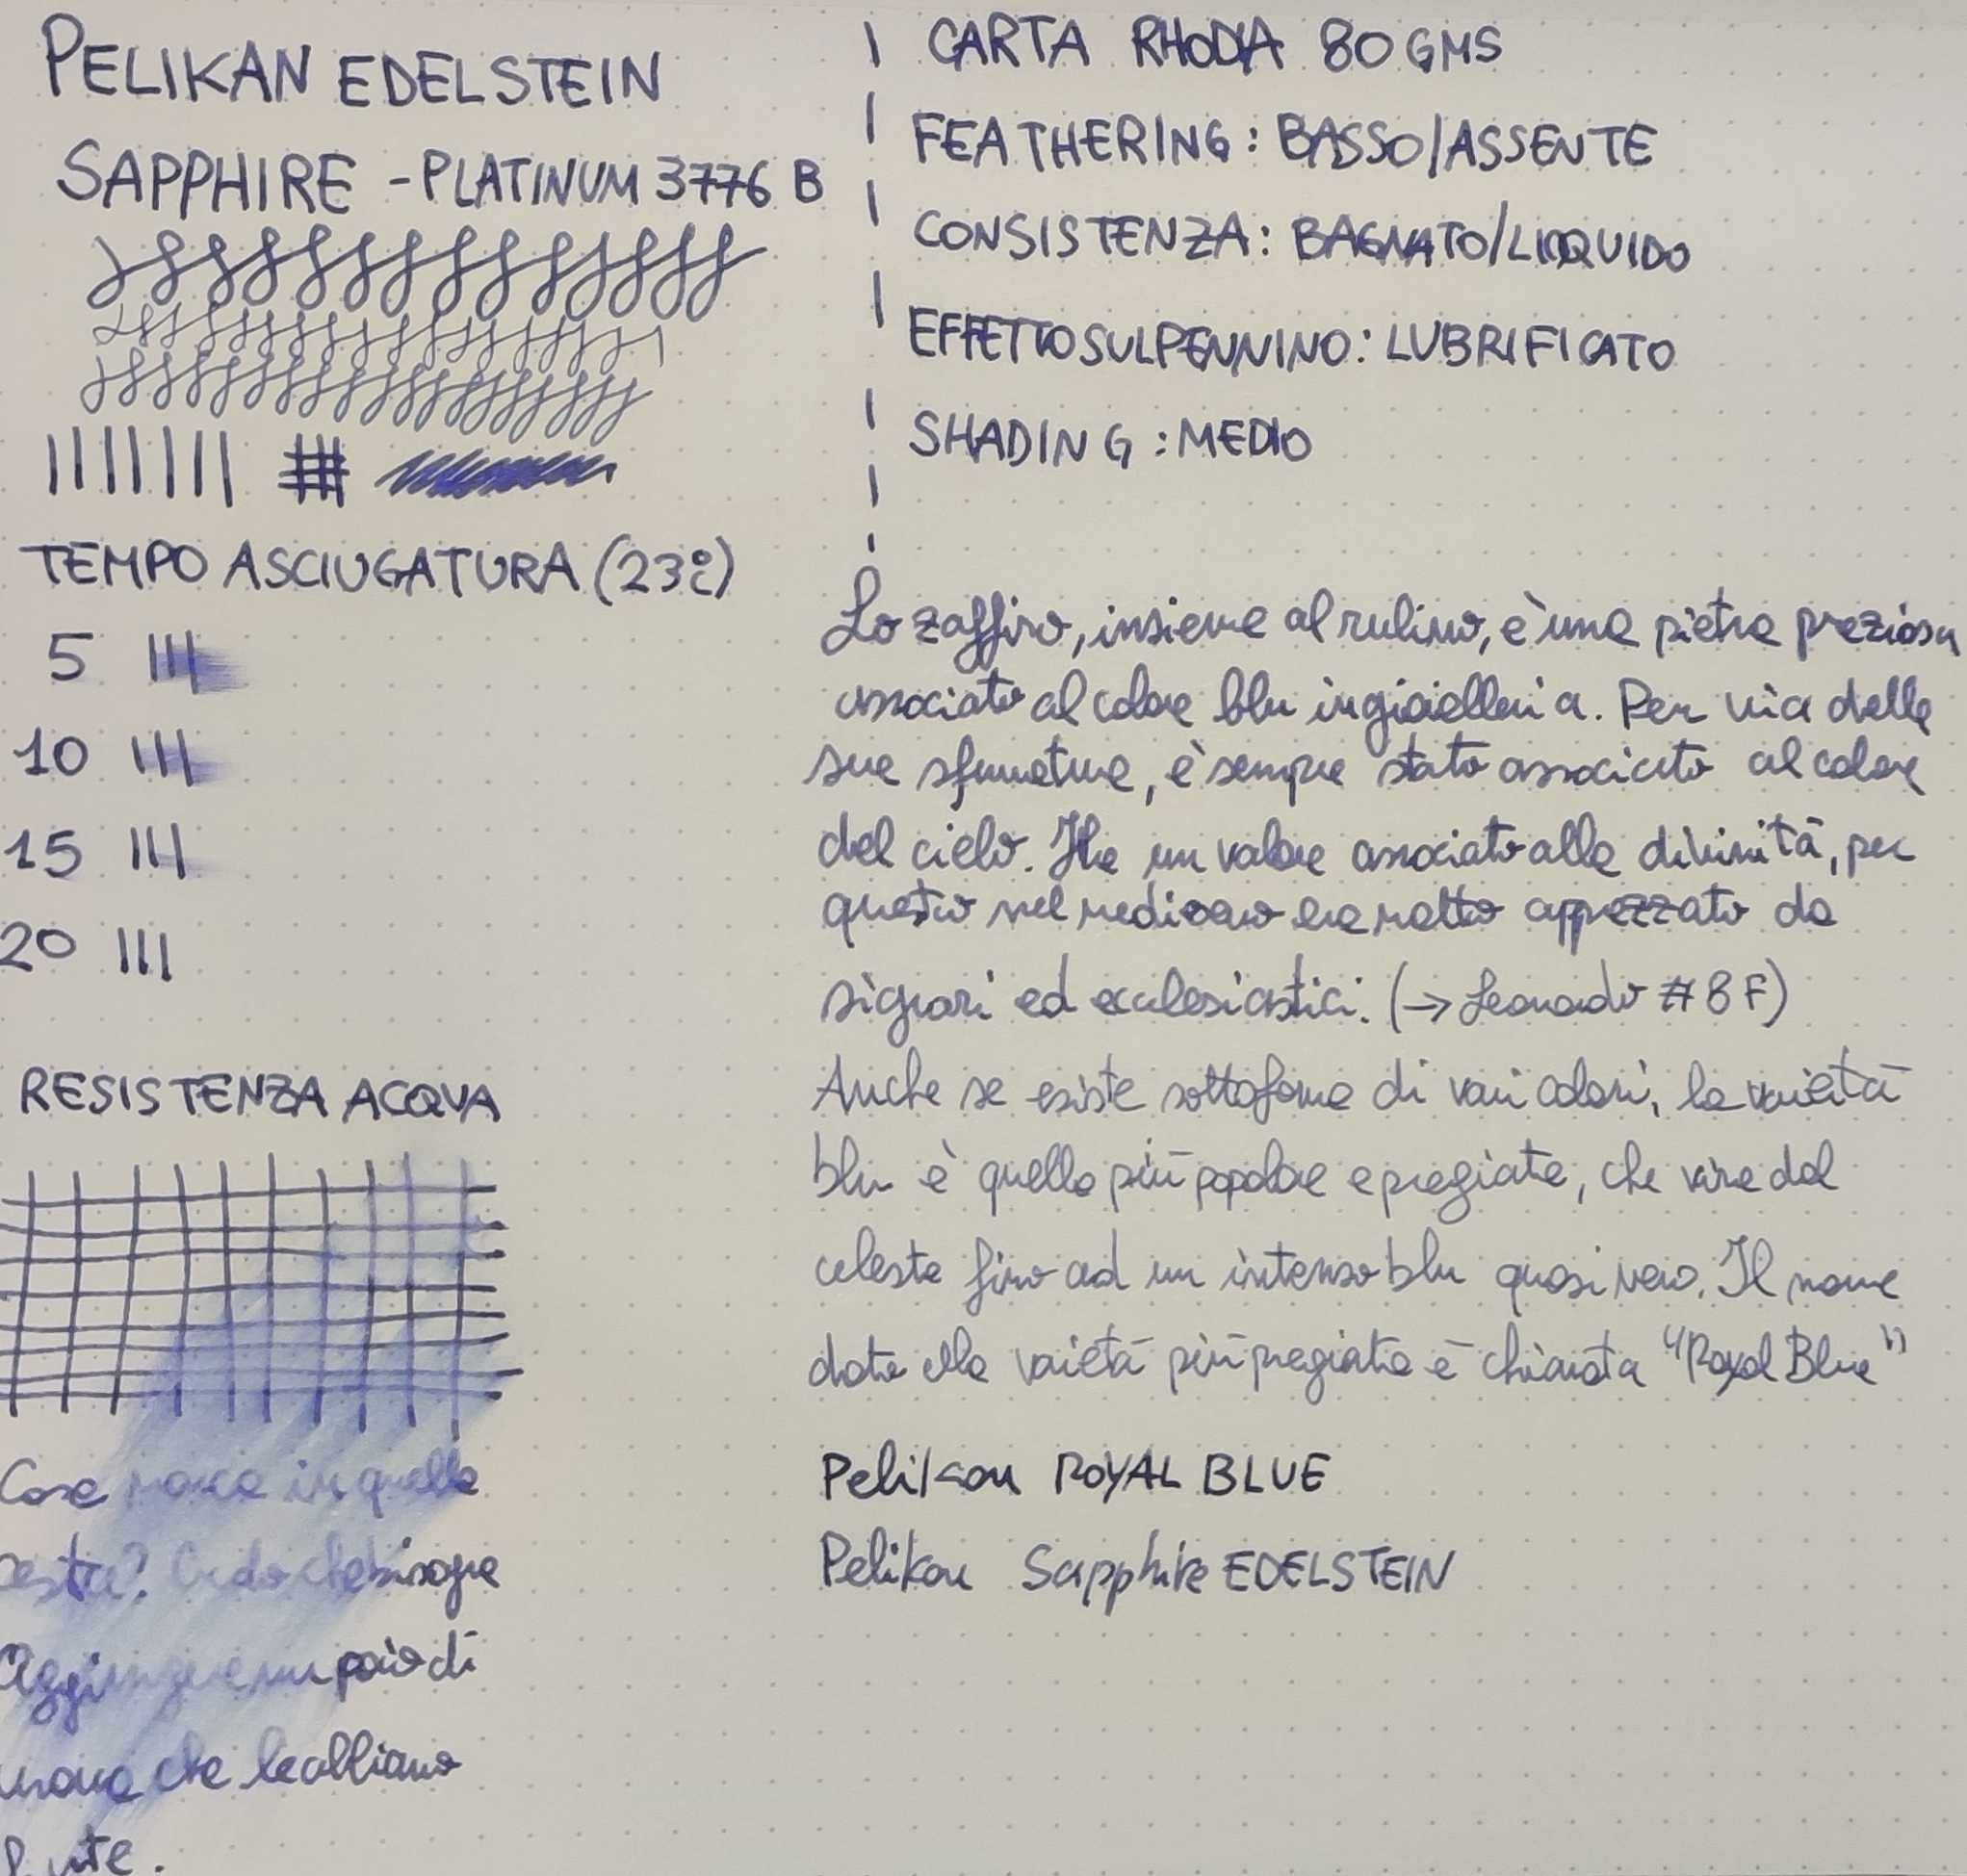 PELIKAN EDELSTEIN
SAPPHIRE - PLATINUM 3776 B
TEMPO ASCIUGATURA (23°C)
5
10
15
20
RESISTENZA ACQUA
Cosa manca in quella
testa? Credo che bisogna
aggiungere un paio di
uova che le abbiano
CARTA RHODIA 80 GMS
FEATHERING: BASSO/ASSENTE
CONSISTENZA: BAGNATO/LIQUIDO
EFFETTO SUL PENNINO: LUBRIFICATO
SHADING: MEDIO
Lo zaffiro, insieme al rubino, è una pietra preziosa
associato al colore blu in gioielleria. Per via delle
sue sfumature, è sempre stato associato al colore
del cielo. Ha un valore associato alla divinità, per
questo nel medioevo era molto apprezzato da
signori ed ecclesiastici. (→ Leonardo #8 F)
Anche se esiste sottoforma di vari colori, la varietà
blu è quella più popolare e pregiata, che vira dal
celeste fino ad un intenso blu quasi nero. Il nome
dato alla varietà più pregiata è chiamata "Royal Blue"
Pelikan ROYAL BLUE
Pelikan Sapphire EDELSTEIN